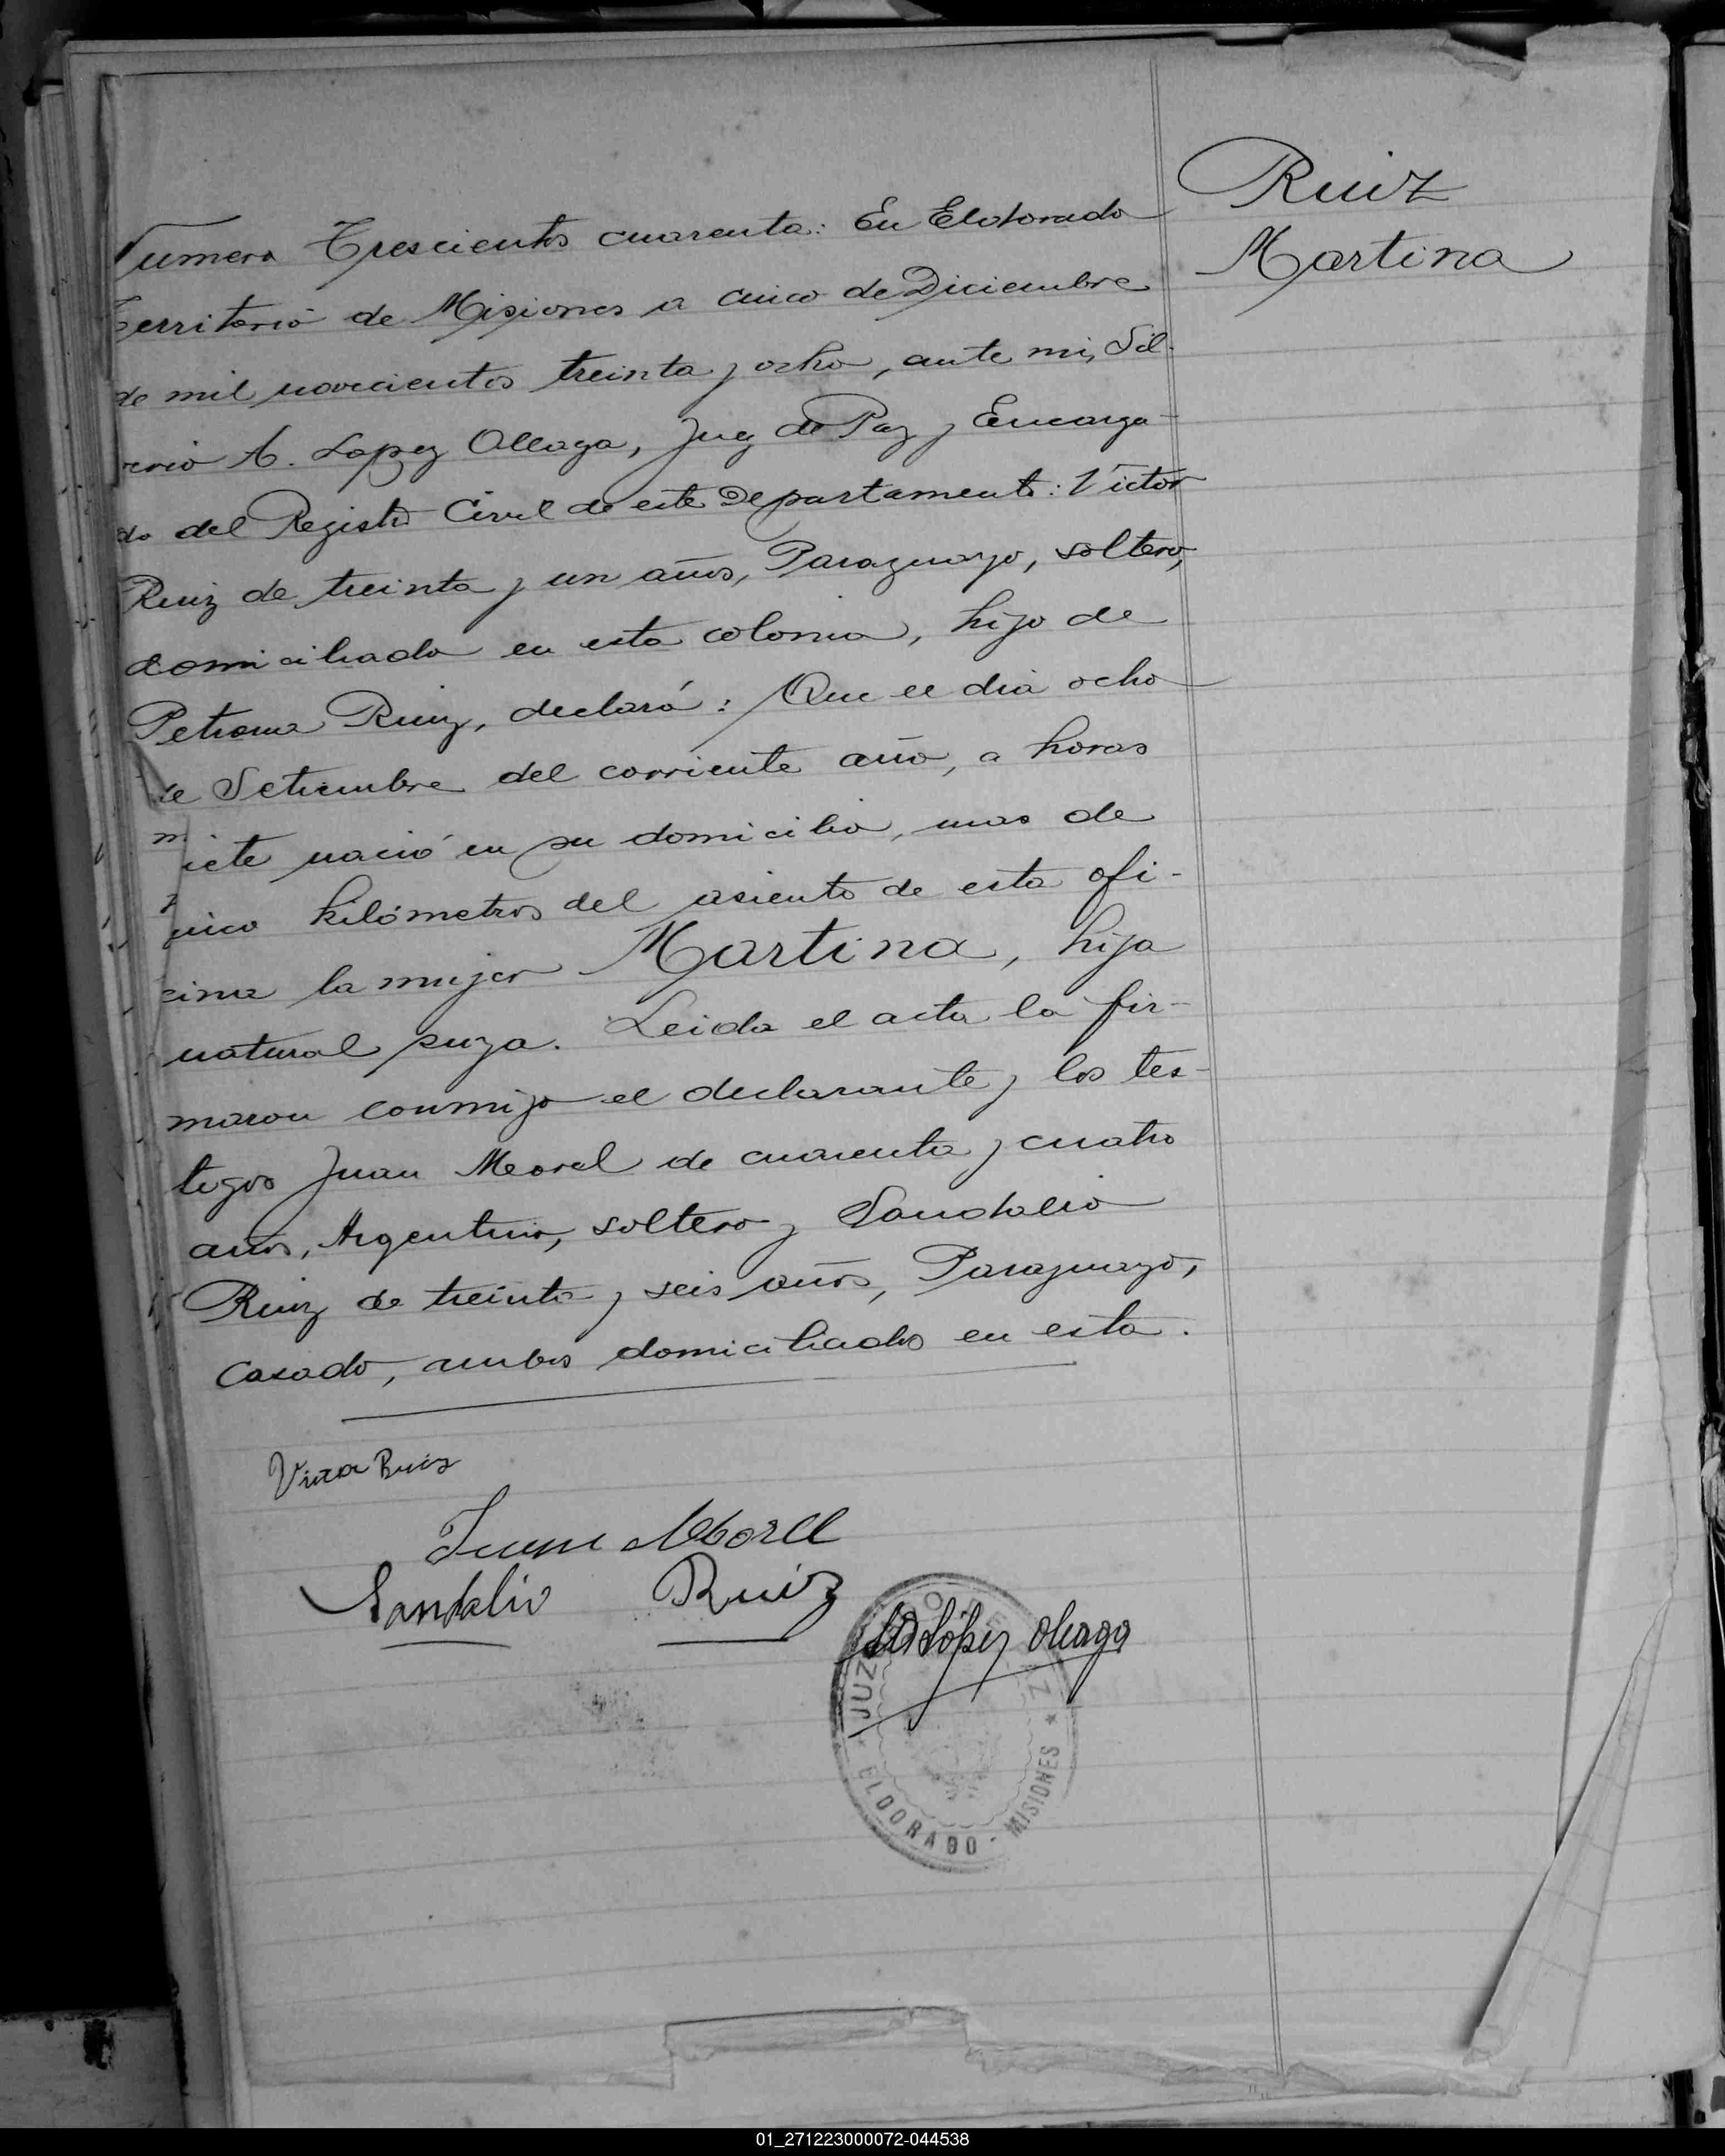 Ruiz
Martina
Numero Trescientos cuarenta: En Eldorado
Territorio de Misiones a cinco de Diciembre
de mil novecientos treinta y ocho, ante mi, Sil-
verio A. Lopez Olleaga, Juez de Paz y Encarga-
do del Registro Civil de este Departamento: Victor
Ruiz de treinta y un años, Paraguayo, soltero,
domiciliado en esta colonia, hijo de
Petrona Ruiz, declaró: Que el dia ocho
de Setiembre del corriente año, a horas
iete nació en su domicilio, mas de
inco kilómetros del asiento de esta ofi-
cina la mujer Martina, hija
natural suya. Leida el acta la fir-
maron conmigo el declarante y los tes-
tigos Juan Morel de cuarenta y cuatro
años, Argentino, soltero y Sandalio
Ruiz de treinta y seis años, Paraguayo,
casado, ambos domiciliados en esta.
Victor Ruiz
Juan Morel
Sandalio Ruiz
López Oleaga
JUZ DO DE AZ
ELDORADO - MISIONES
01_271223000072-044538